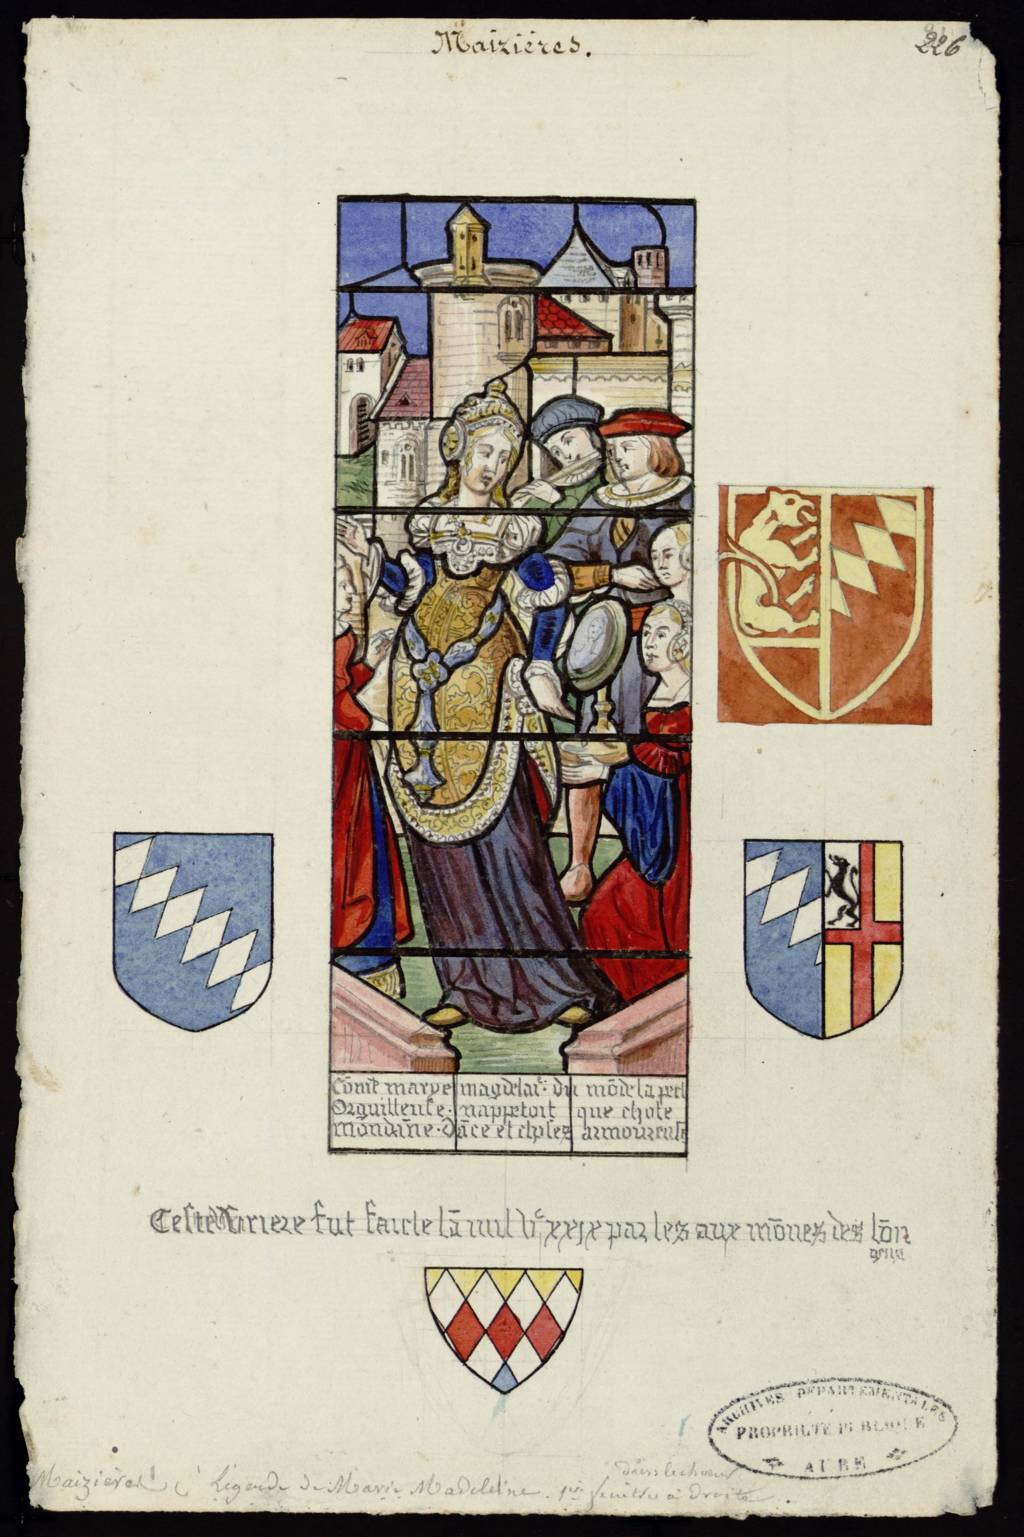 Maizières.
226
cōme marye magdelai͞e du mōde la
Orguilleuse. nappetoit que chose
mōndaīne. Dāce et amoureuse
Ceste fut faicte lā mil vᶜ xxjx par les aux mōnes des bōn
gens
ARCHIVES DÉPARTEMENTALES
PROPRIÉTÉ PUBLIQUE
AUBE
dans le choeur
Maizières Légende de Marie Madeleine. 1ʳᵉ fenêtre à droite.